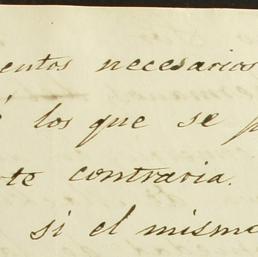 entos necesarios
los que se p
te contraria.
si el mismo